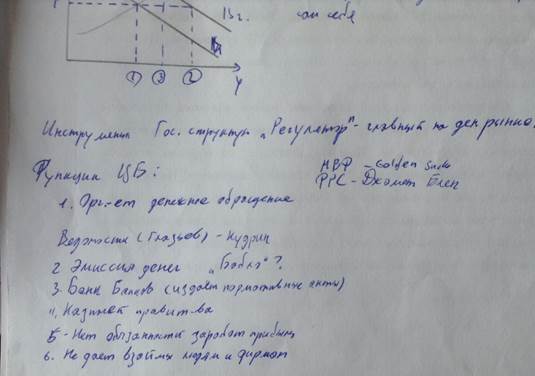 P
Br.
сам себя
① ③ ② Y
Инструмент Гос. структуры „Регулятор" - главный на ден рынке.
Функции ЦБ:
МВФ - Golden Sachs
ФРС - Джомет Блен
1. Орг-ет денежное обращение
Ведомости (Глазьев) - Кудрин
2 Эмиссия денег „Бабло"?
3. Банк Банков (издает нормативные акты)
4. Казначей правит-ва
5 - Нет обязанности заработ прибыль
6. Не дает взаймы людям и фирмам